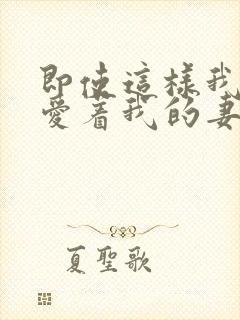 即使這樣我
愛着我的妻
夏聖歌